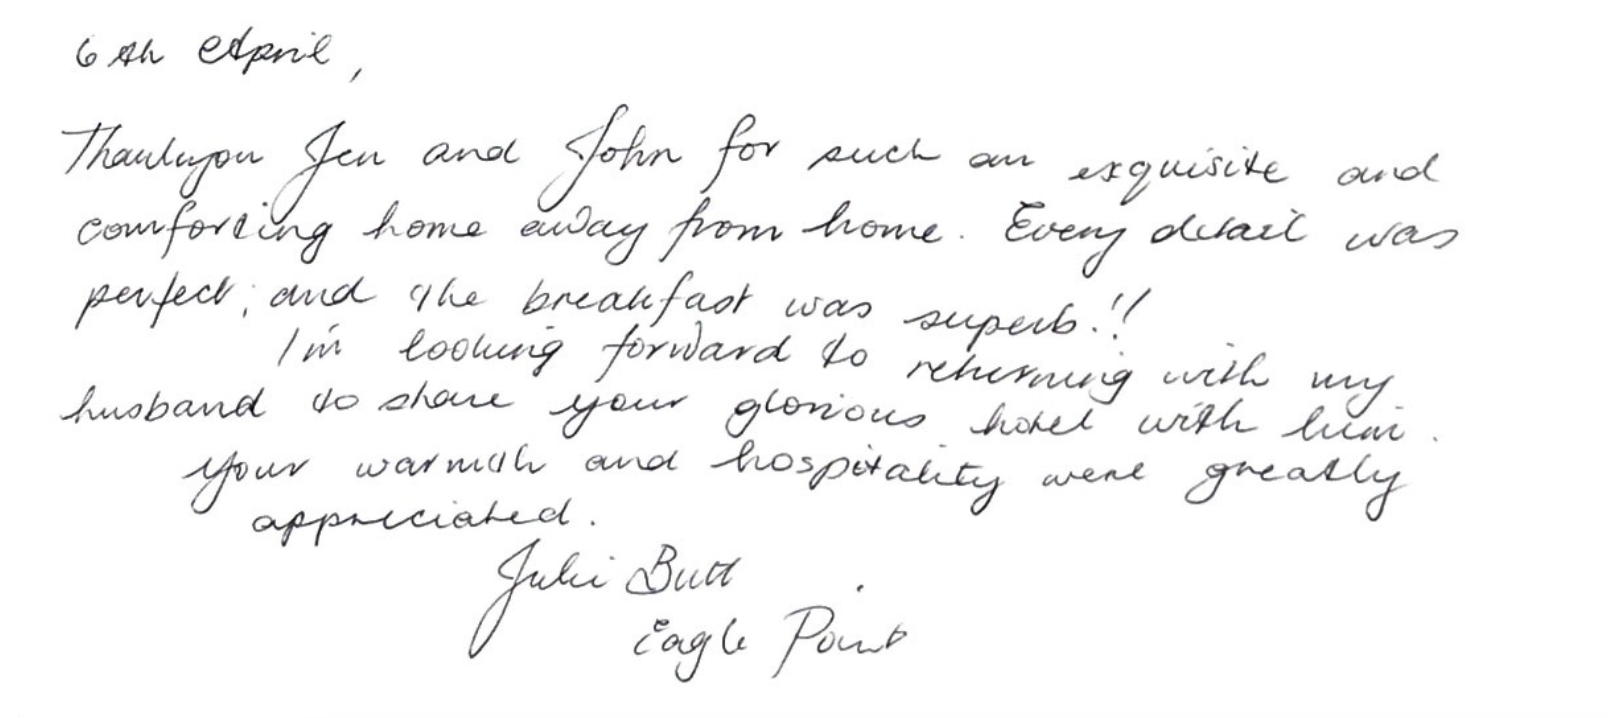 6th April,
Thankyou Jen and John for such an exquisite and
comforting home away from home. Every detail was
perfect, and the breakfast was superb!!
I'm looking forward to returning with my
husband to share your glorious hotel with him.
Your warmth and hospitality were greatly
appreciated.
Julie Butt
Eagle Point